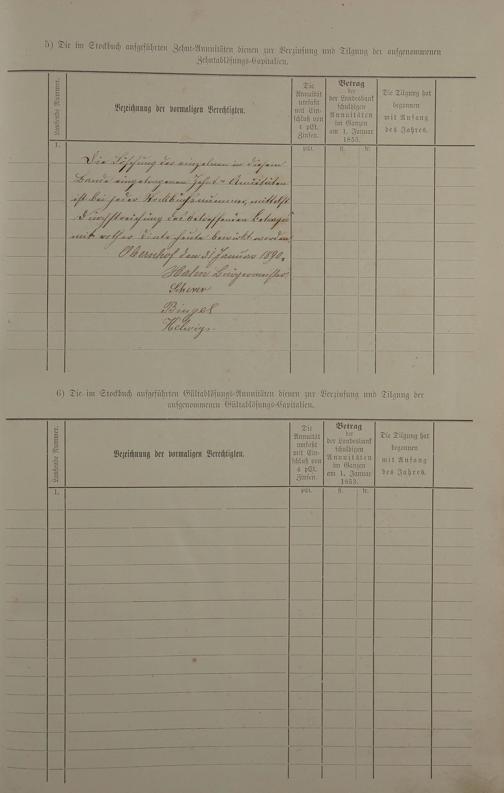 5) Die im Stockbuch aufgeführten Zehnt-Annuitäten dienen zur Verzinsung und Tilgung der aufgenommenen
Zehntablösungs-Capitalien.
Laufende Nummer.
Bezeichnung der vormaligen Berechtigten.
Die
Annuität
umfaßt
mit Ein-
schluß von
4 pCt.
Zinsen.
Betrag
der
der Landesbank
schuldigen
Annuitäten
im Ganzen
am 1. Januar
1853.
Die Tilgung hat
begonnen
mit Anfang
des Jahres.
1.
pCt.
fl.
kr.
Die Löschung des einzelnen in diesem
Bande eingetragenen Zehnt-Annuitäten
ist bei jeder Stockbuchsnummer, mittelst
Durchstreichung des betreffenden Betrages
mit rother Dinte heute bewirkt worden.
Obernhof den 31 Januar 1890.
Hahn Bürgermeister
Scherer
Bingel
Helwig.
6) Die im Stockbuch aufgeführten Gültablösungs-Annuitäten dienen zur Verzinsung und Tilgung der
aufgenommenen Gültablösungs-Capitalien.
Laufende Nummer.
Bezeichnung der vormaligen Berechtigten.
Die
Annuität
umfaßt
mit Ein-
schluß von
4 pCt.
Zinsen.
Betrag
der
der Landesbank
schuldigen
Annuitäten
im Ganzen
am 1. Januar
1853.
Die Tilgung hat
begonnen
mit Anfang
des Jahres.
1.
pCt.
fl.
kr.